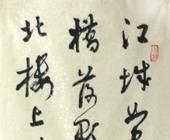 江城
橋落彩
北樓上